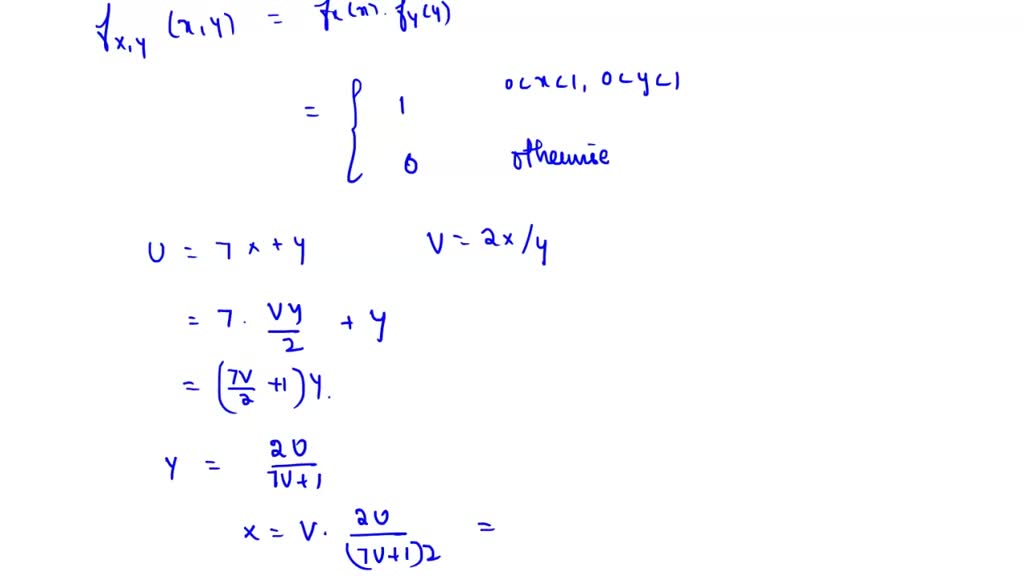 f_{x,y} (x,y) = f_x(x). f_y(y)
= { 1 0<x<1, 0<y<1
0 otherwise
U = 7x + y V = 2x/y
= 7. Vy/2 + y
= (7V/2 + 1) y.
y = 2U/7V+1
x = V. 2U/(7V+1)2 =